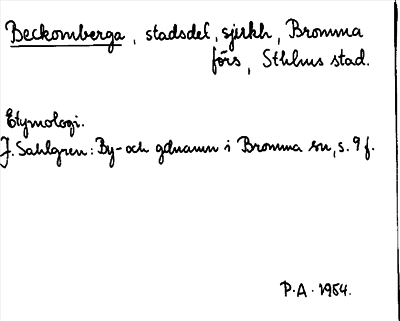 Beckomberga, stadsdel, sjukh, Bromma
förs, Sthlms stad.
Etymologi.
J. Sahlgren: By- och gdnamn i Bromma sn, s. 9 f.
P.A. 1954.